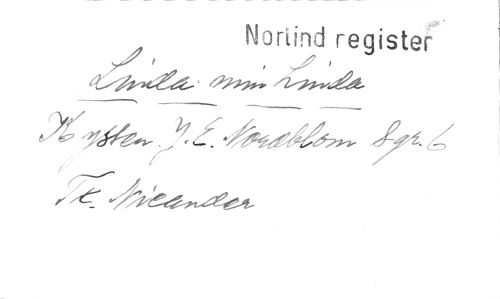 Norlind register
Linda min Linda
Kyssen. J. E. Nordblom Sgr. 6
Tk. Nicander